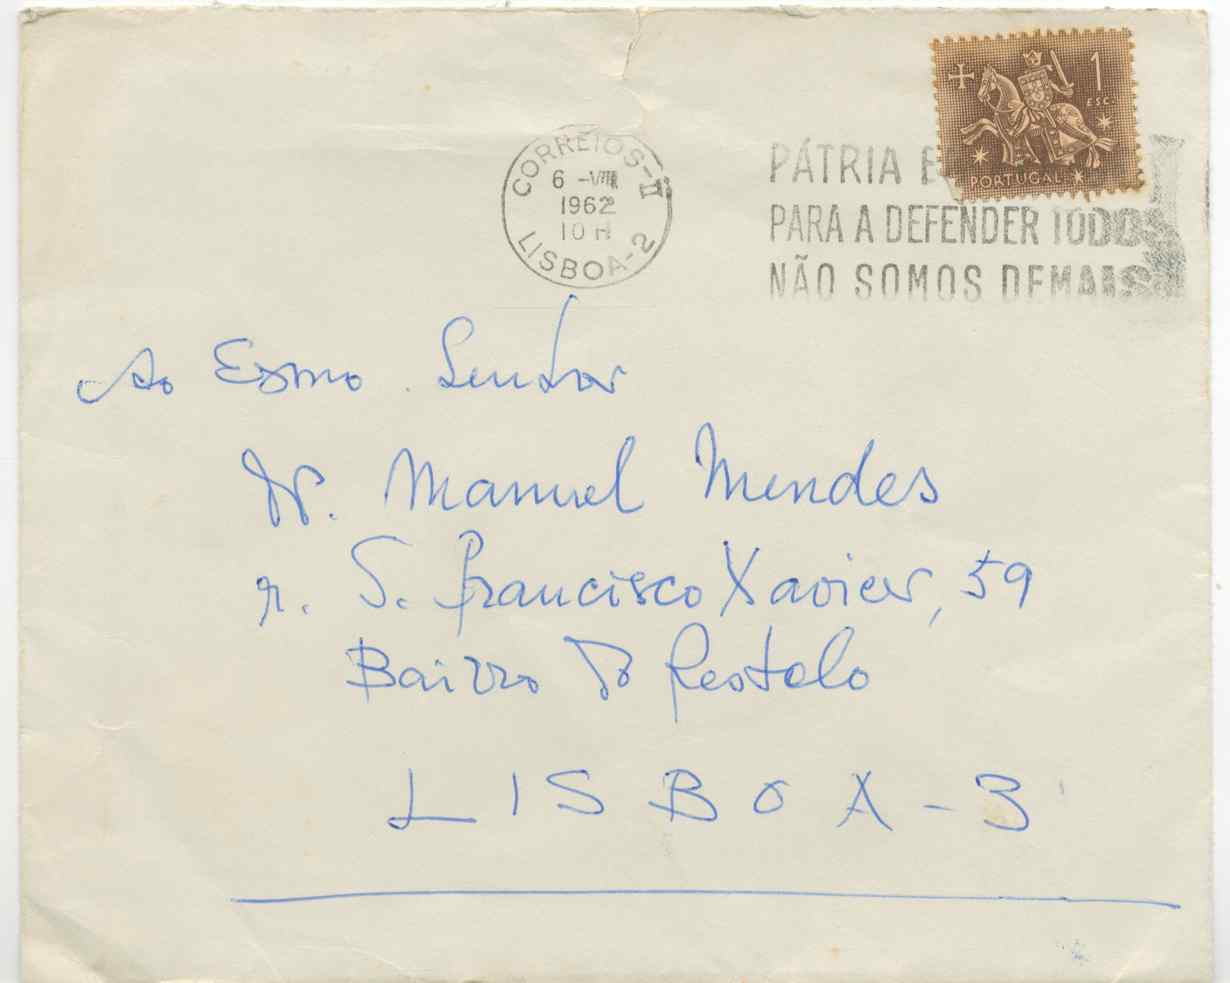 1
ESC.
PORTUGAL
CORREIOS-II
6 -VIII
1962
10 H
LISBOA-2
PÁTRIA E
PARA A DEFENDER TODOS
NÃO SOMOS DEMAIS
Ao Exmo. Senhor
Dr. Manuel Mendes
r. S. Francisco Xavier, 59
Bairro do Restelo
LISBOA-3